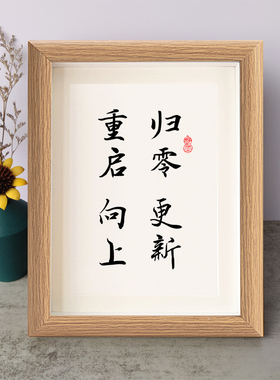 归零 更新
重启 向上